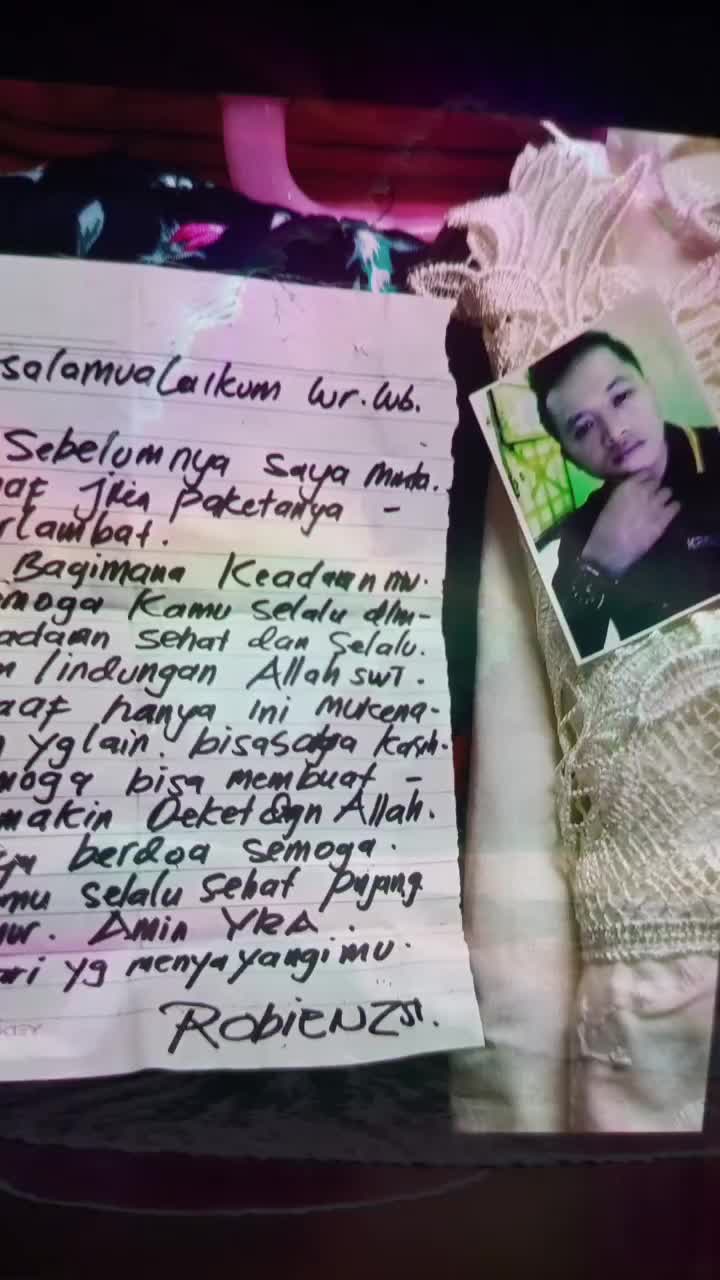 salamualaikum Wr. Wb.
Sebelumnya saya minta.
aaf jika paketanya -
rlambat.
Bagimana Keadaan mu.
moga Kamu selalu dlm-
adaan sehat dan selalu.
m lindungan Allah SWT.
aaf hanya ini mukena-
yg lain. bisa saya kasih.
moga bisa membuat -
makin Deket dgn Allah.
ya berdoa semoga.
mu selalu sehat pajang
mur. Amin YRA.
ari yg menyayangimu.
ROBIENZ